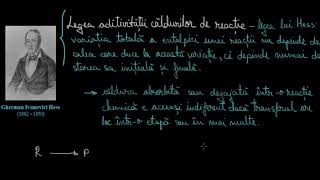 Legea aditivității căldurilor de reacție – legea lui Hess
variația totală a entalpiei unei reacții nu depinde de
calea care duce la această variație, ci depinde numai de
starea sa inițială și finală.
→ căldura absorbită sau degajată într-o reacție
chimică e aceeași indiferent dacă transferul are
loc într-o etapă sau în mai multe.
Gherman Ivanovici Hess
(1802 - 1850)
R → P